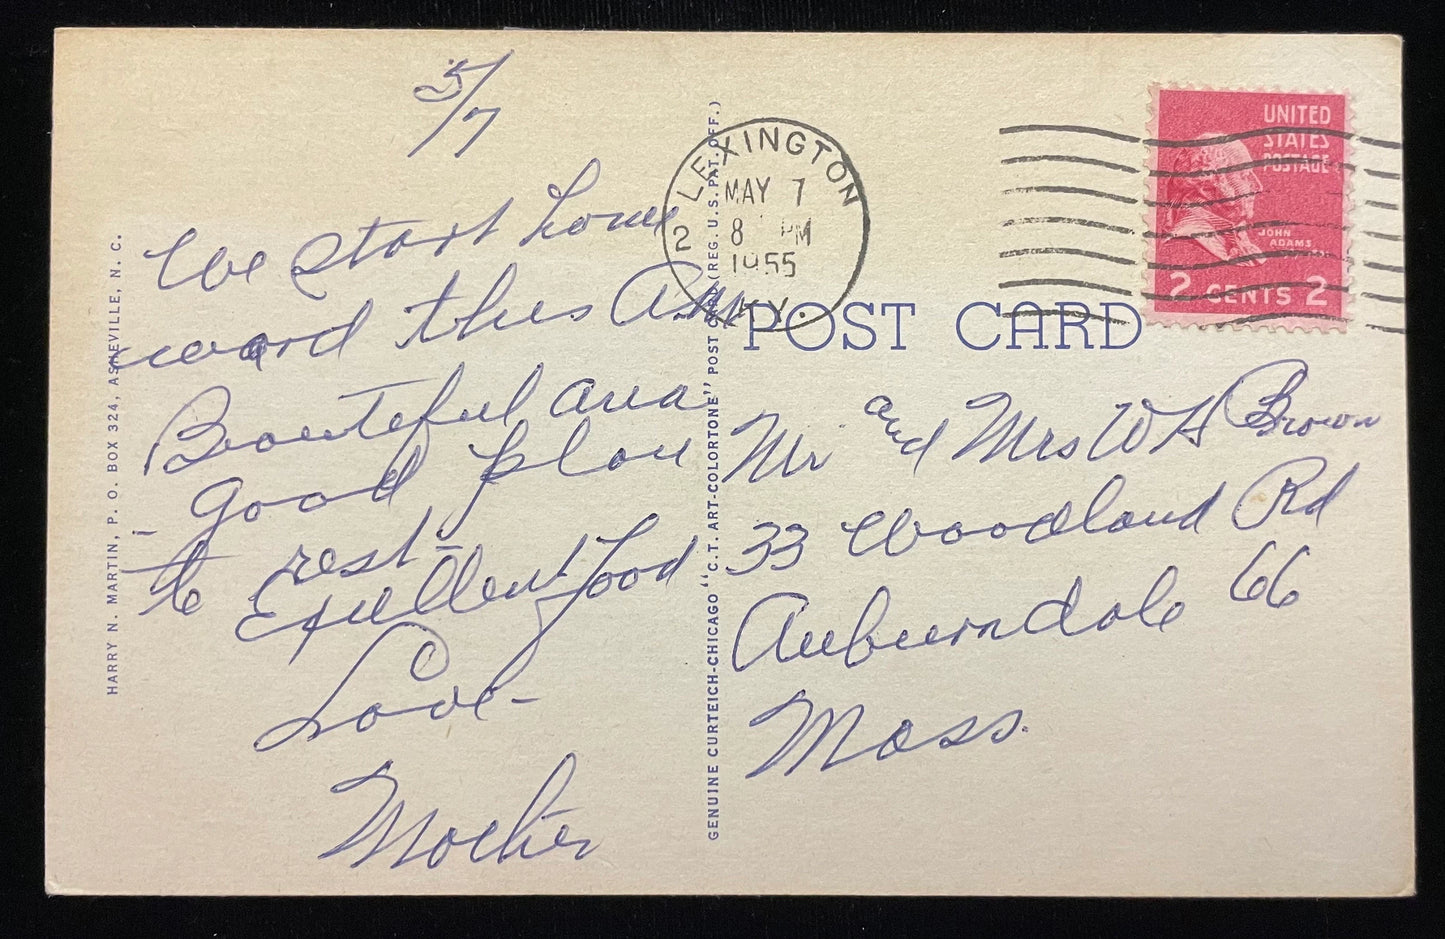 5/7
We start home
ward this A.M.
Beautiful area
good place
to rest-
Excellent food
Love-
Mother
HARRY N. MARTIN, P. O. BOX 324, ASHEVILLE, N. C.
GENUINE CURTEICH-CHICAGO "C.T. ART-COLORTONE" POST CARD (REG. U.S. PAT. OFF.)
LEXINGTON
MAY 7
8 PM
1955
2
KY.
UNITED
STATES
POSTAGE
JOHN
ADAMS
2 CENTS 2
POST CARD
Mr and Mrs W H Brown
33 Woodland Rd
Auburndale 66
Mass.